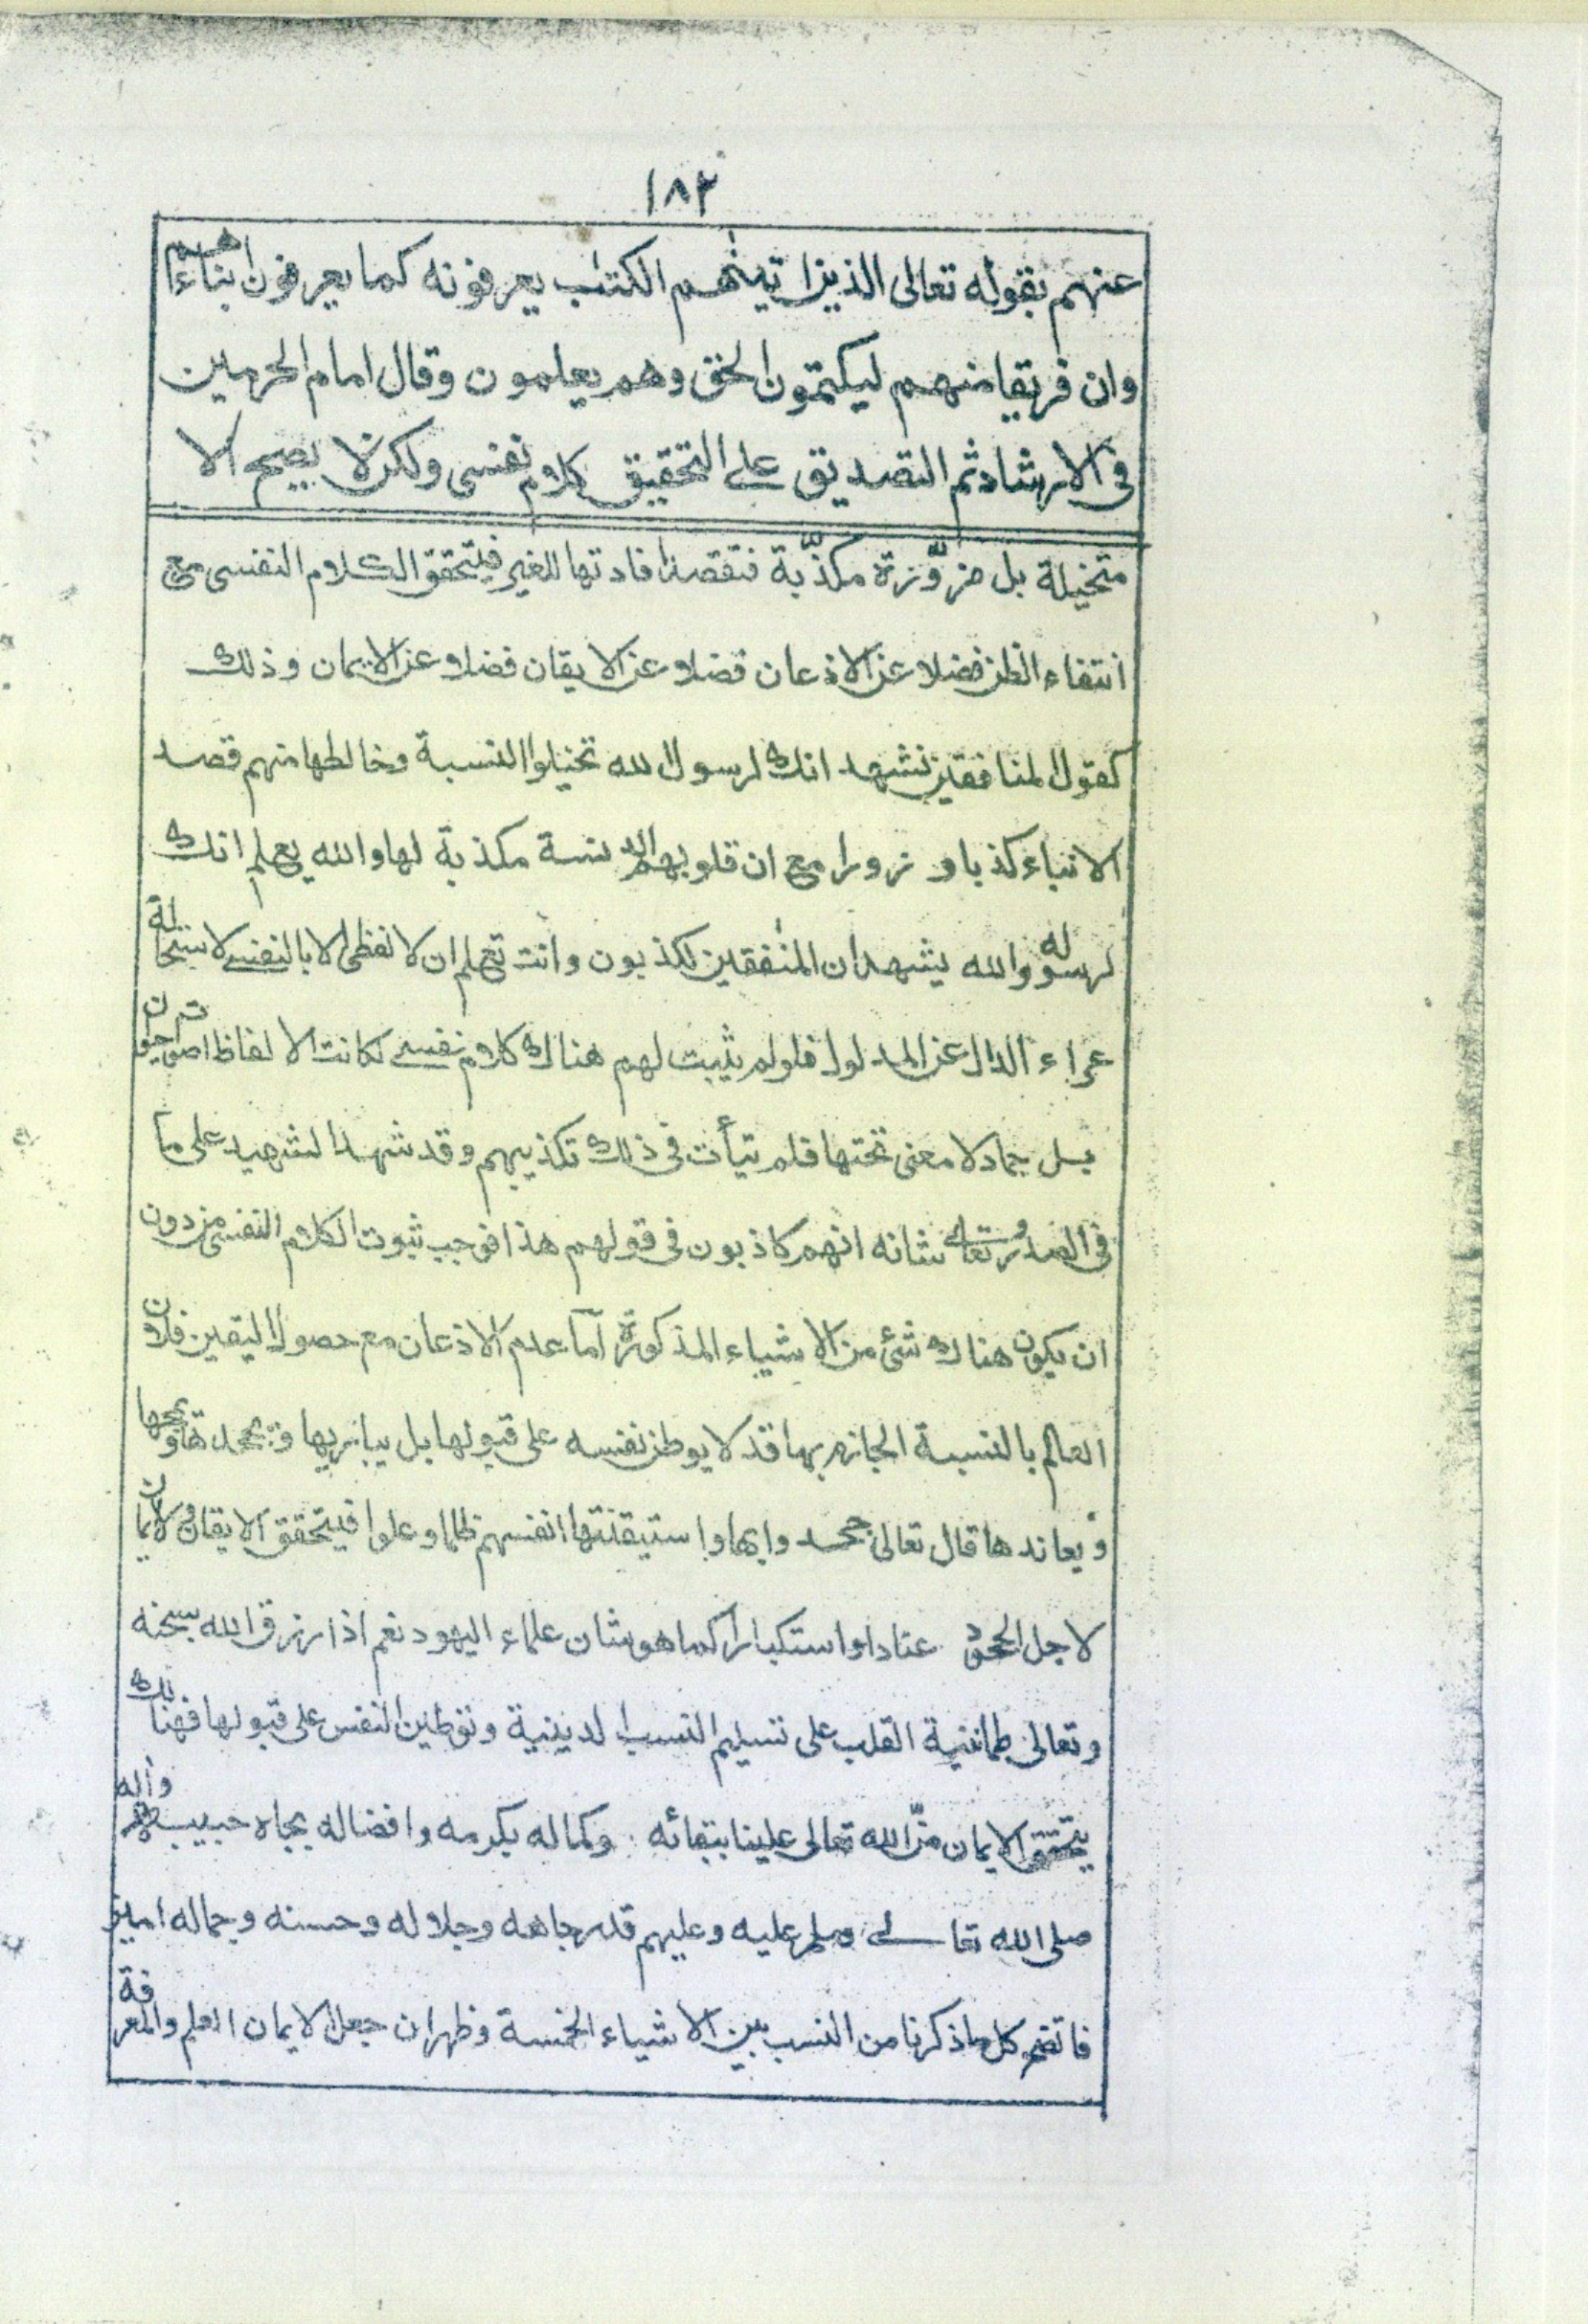 ١٨٢
عنهم بقوله تعالى الذين اتينٰهم الكتٰب يعرفونه كما يعرفون ابناءهم
وان فريقا منهم ليكتمون الحق وهم يعلمون وقال امام الحرمين
فى الارشاد ثم التصديق على التحقيق كلام نفسى ولكن لا يصح الا
متخيلة بل مزوّرة مكذّبة فتقصد افادتها للغير فيتحقق الكلام النفسى مع
انتفاء الظن فضلا عن الاذعان فضلا عن الايقان فضلا عن الايمان وذلك
كقول المنافقين نشهد انك لرسول الله تخيلوا النسبة وخالطها منهم قصد
الانباء كذبا وزورا مع ان قلوبهم الدنسة مكذبة لها والله يعلم انك
لرسوله والله يشهد ان المنٰفقين لكذبون وانت تعلم ان لا لفظى الا بالنفسى لاستحالة
عراء الدال عن المدلول فلو لم يثبت لهم هناك كلام نفسى لكانت الالفاظ اصوات حيوان
بل جماد لا معنى تحتها فلم يتأت فى ذلك تكذيبهم وقد شهد الشهيد على ما
فى الصدور تعالى شانه انهم كاذبون فى قولهم هذا فوجب ثبوت الكلام النفسى من دون
ان يكون هناك شئ من الاشياء المذكورة اما عدم الاذعان مع حصول اليقين فلان
العالم بالنسبة الجازم بها قد لا يوطن نفسه على قبولها بل يباريها ويجحدها ويمجها
ويعاندها قال تعالى جحدوا بها واستيقنتها انفسهم ظلما وعلوا فيتحقق الايقان ولا ايمان
لاجل الجحود عنادا واستكبارا كما هو شان علماء اليهود نعم اذا رزق الله سبحٰنه
وتعالى طمانينة القلب على تسليم النسب الدينية وتوطين النفس على قبولها فهنالك
يتحقق الايمان منّ الله تعالى علينا ببقائه وكماله بكرمه وافضاله بجاه حبيبه واٰله
صلى الله تعالى وسلم عليه وعليهم قدر جاهه وجلاله وحسنه وجماله امين
فاتضح كل ما ذكرنا من النسب بين الاشياء الخمسة وظهر ان جعل الايمان العلم والمعرفة